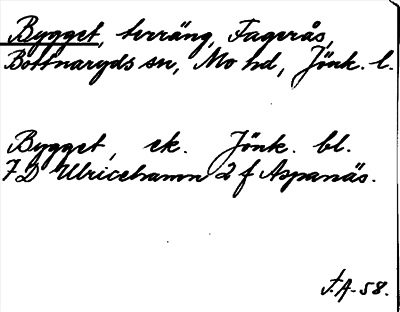 Bygget, terräng, Fagerås,
Bottnaryds sn, Mo hd, Jönk. l.
Bygget, ek. Jönk. bl.
7D Ulricehamn 2 f Aspanäs.
F.A-58.